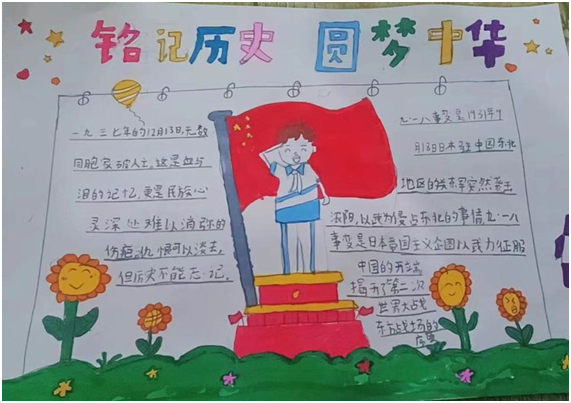 铭记历史 圆梦中华
一九三七年的12月13日,无数
同胞家破人亡,这是血与
泪的记忆,更是民族心
灵深处难以消弥的
伤疤,仇恨可以淡去,
但历史不能忘记。
九一八事变是1931年9
月18日日本在中国东北
地区的关东军突然袭击
沈阳,以武力侵占东北的事情九一八
事变是日本帝国主义企图以武力征服
中国的开端
揭开了第二次
世界大战
东方战场的
序幕